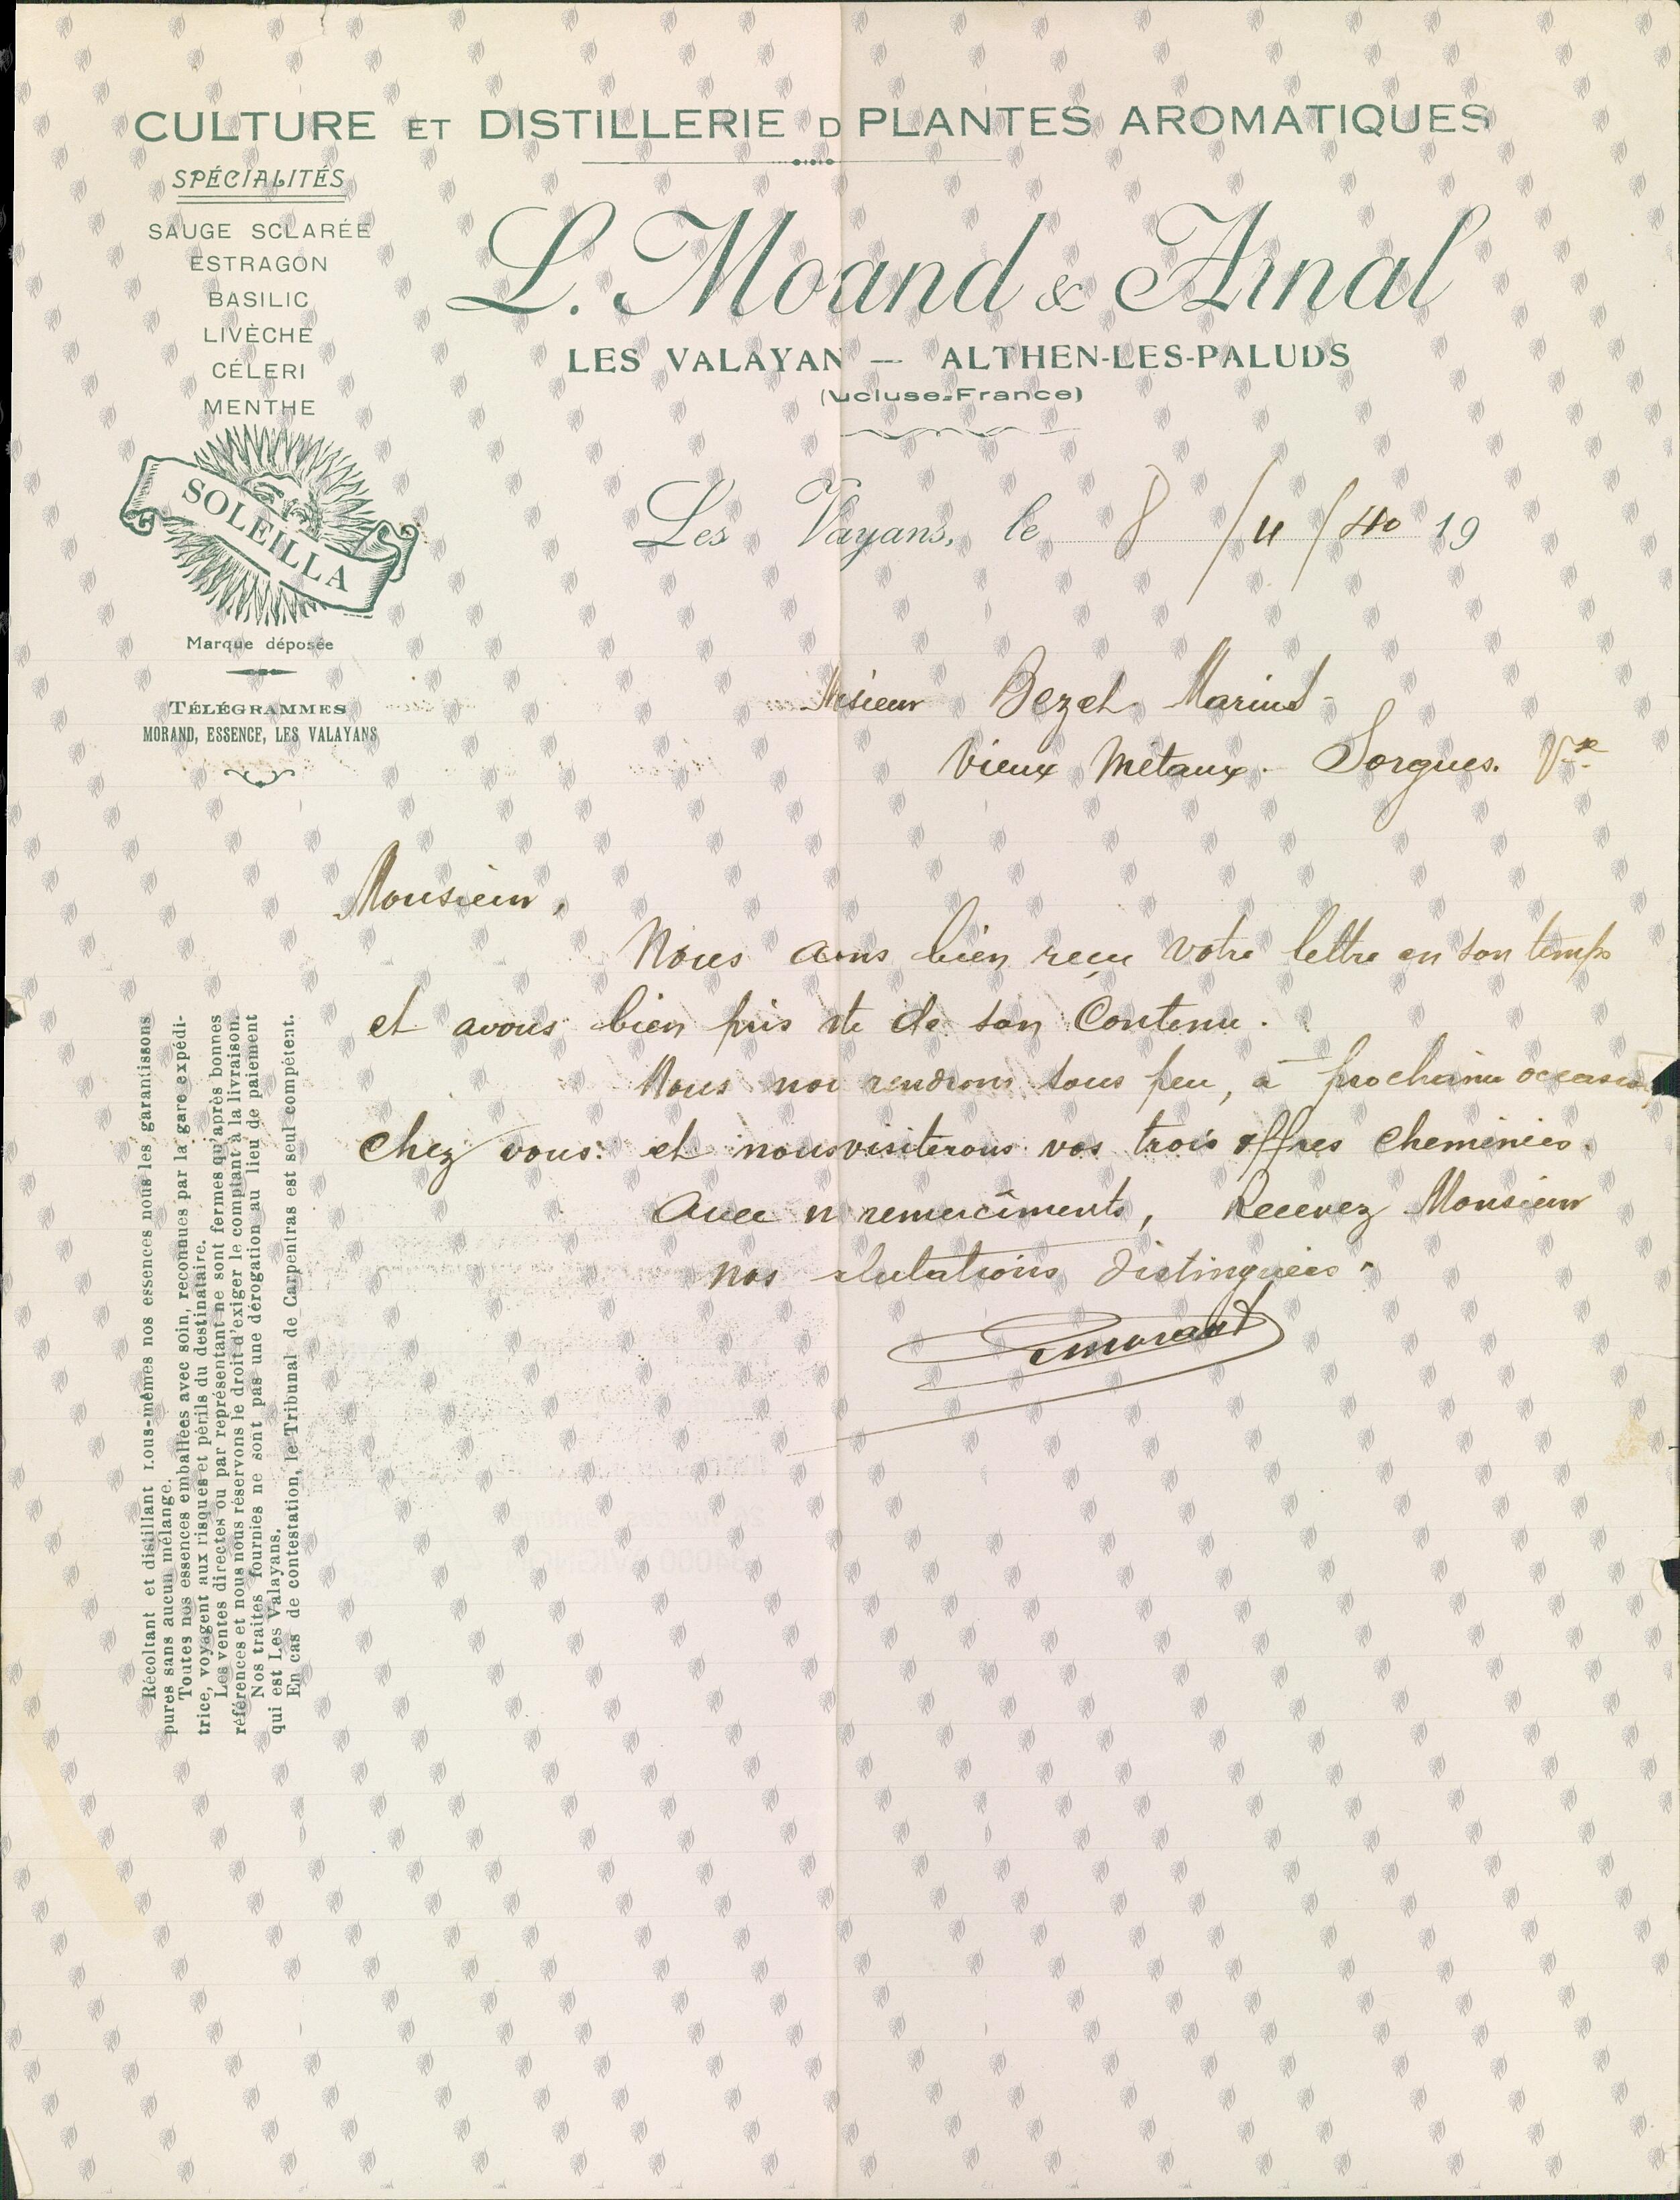 CULTURE ET DISTILLERIE D PLANTES AROMATIQUES
SPÉCIALITÉS
SAUGE SCLARÉE
ESTRAGON
BASILIC
LIVÈCHE
CÉLERI
MENTHE
SOLEILLA
Marque déposée
TÉLÉGRAMMES
MORAND, ESSENCE, LES VALAYANS
L. Moand & Arnal
LES VALAYAN — ALTHEN-LES-PALUDS
(Vcluse-France)
Les Vayans, le 8/4/40 19
Msieur Bezet Marius
Vieux Métaux. Sorgues. Vse
Monsieur,
Nous aons bien reçu votre lettre en son temps
et avons bien pris te de son Contenu.
Nous nou rendrons sous peu, à prochaine occasion
chez vous: et nous visiterons vos trois offres cheminées.
Avec n remerciments, Recevez Monsieur
nos alutations distinguées.
Lmorand
Récoltant et distillant nous-mêmes nos essences nous les garantissons
pures sans aucun mélange.
Toutes nos essences emballées avec soin, reconnues par la gare expédi-
trice, voyagent aux risques et périls du destinataire.
Les ventes directes ou par représentant ne sont fermes qu'après bonnes
références et nous nous réservons le droit d'exiger le comptant à la livraison.
Nos traites fournies ne sont pas une dérogation au lieu de paiement
qui est Les Valayans.
En cas de contestation, le Tribunal de Carpentras est seul compétent.